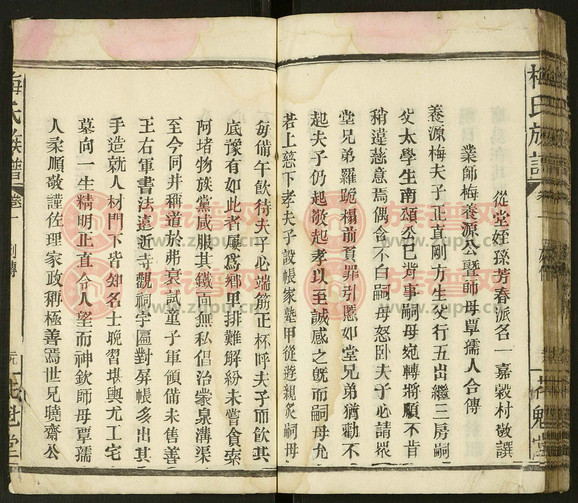 梅氏族譜
從堂姪孫芳春派名一嘉穀村敬譔
業師梅養源公暨師母單孺人合傳
養源梅夫子正直剛方生父行五出繼三房嗣
父太學生南頌公巳故事嗣母宛轉將順不肯
稍違慈意焉偶含不白嗣母怒卧夫子心請眾
堂兄弟羅跪榻前頁罪引慝如堂兄弟猶勸不
起夫子仍越敬起孝以至誠感之旣而嗣母允
若上慈下孝夫子設帳家塾甲從遊親炙嗣母
每備午飲待夫子必端筯正杯呼夫子而飲其
底豫有如此者屢爲鄉里排難解紛未嘗食索
阿堵物族黨咸服其鐵面無私倡治蒙泉溝渠
至今同井稱道於弗衰試童子軍領備未售善
王右軍書法遠近寺觀祠宇匾對屏帳多出其
手造就人材門下皆知名士晩習堪輿尤工宅
墓向一生精明正直令人望而神欽師母單孺
人柔順敬謹佐理家政稱極善焉世兄曉齋公
梅氏族譜
卷一
列傳
花魁堂